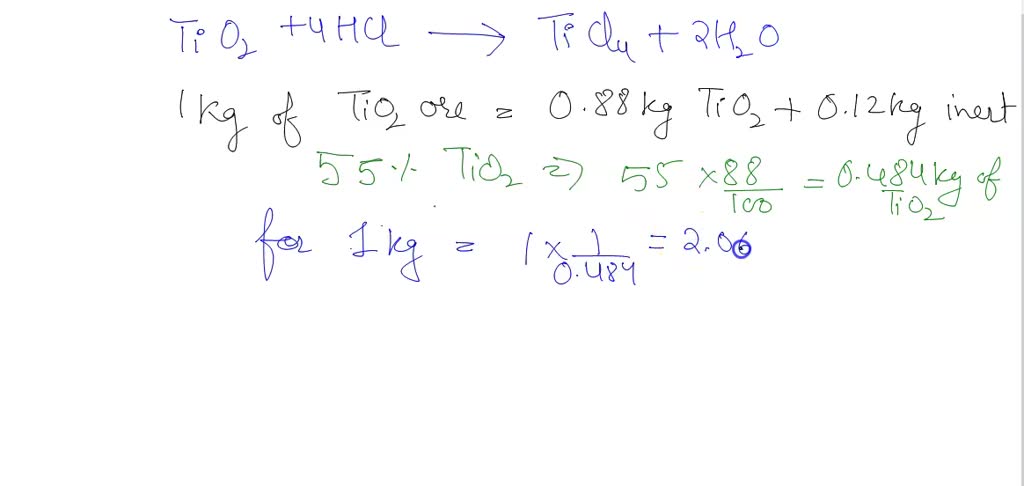 TiO₂ + 4HCl → TiCl₄ + 2H₂O
1 kg of TiO₂ ore = 0.88 kg TiO₂ + 0.12 kg inert
55 % TiO₂ ⇒ 55 × 88/100 = 0.484 kg of TiO₂
for 1 kg = 1 × 1/0.484 = 2.06